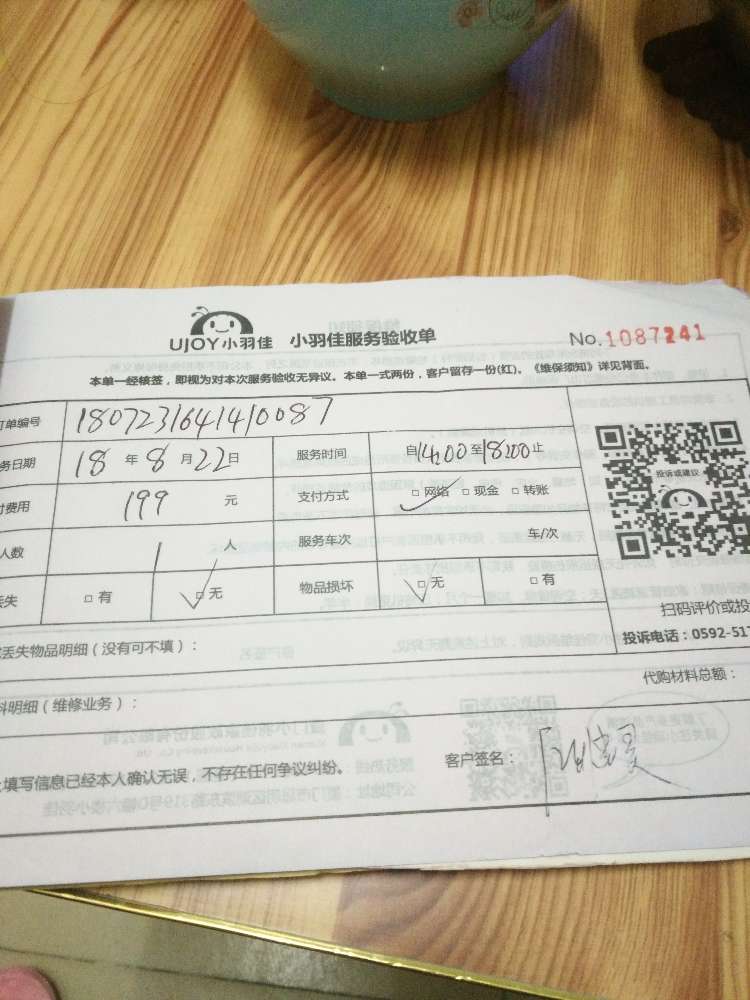 UJOY小羽佳 小羽佳服务验收单 No.1087241
本单一经核签，即视为对本次服务验收无异议。本单一式两份，客户留存一份(红)。《维保须知》详见背面。
订单编号 1807231641410087
务日期 18 年 8 月 22 日 服务时间 自 14:00 至 18:00 止
付费用 199 元 支付方式 □ 网络 □ 现金 □ 转账
人数 1 人 服务车次 车/次
丢失 □ 有 □ 无 物品损坏 □ 无 □ 有
投诉或建议
扫码评价或投
丢失物品明细（没有可不填）： 投诉电话：0592-517
料明细（维修业务）： 代购材料总额：
填写信息已经本人确认无误，不存在任何争议纠纷。 客户签名：